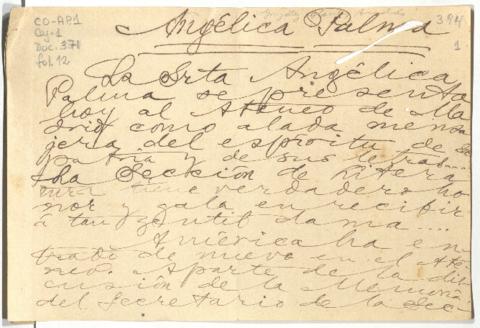 CO-AP1
Caj. 1
Doc. 371
fol. 12
394
1
Angélica Palma
La Srta Angélica
Palma se presenta
hoy al Ateneo de Ma
drid como alada mensa
jera del espíritu de su
patria y de sus letras...
La Sección de Litera
tura tiene verdadero ho
nor y gala en recibir
á tan gentil dama....
América ha en
trado de nuevo en el Ate
neo. Aparte de la dis
cusión de la Memoria
del Secretario de la Sec